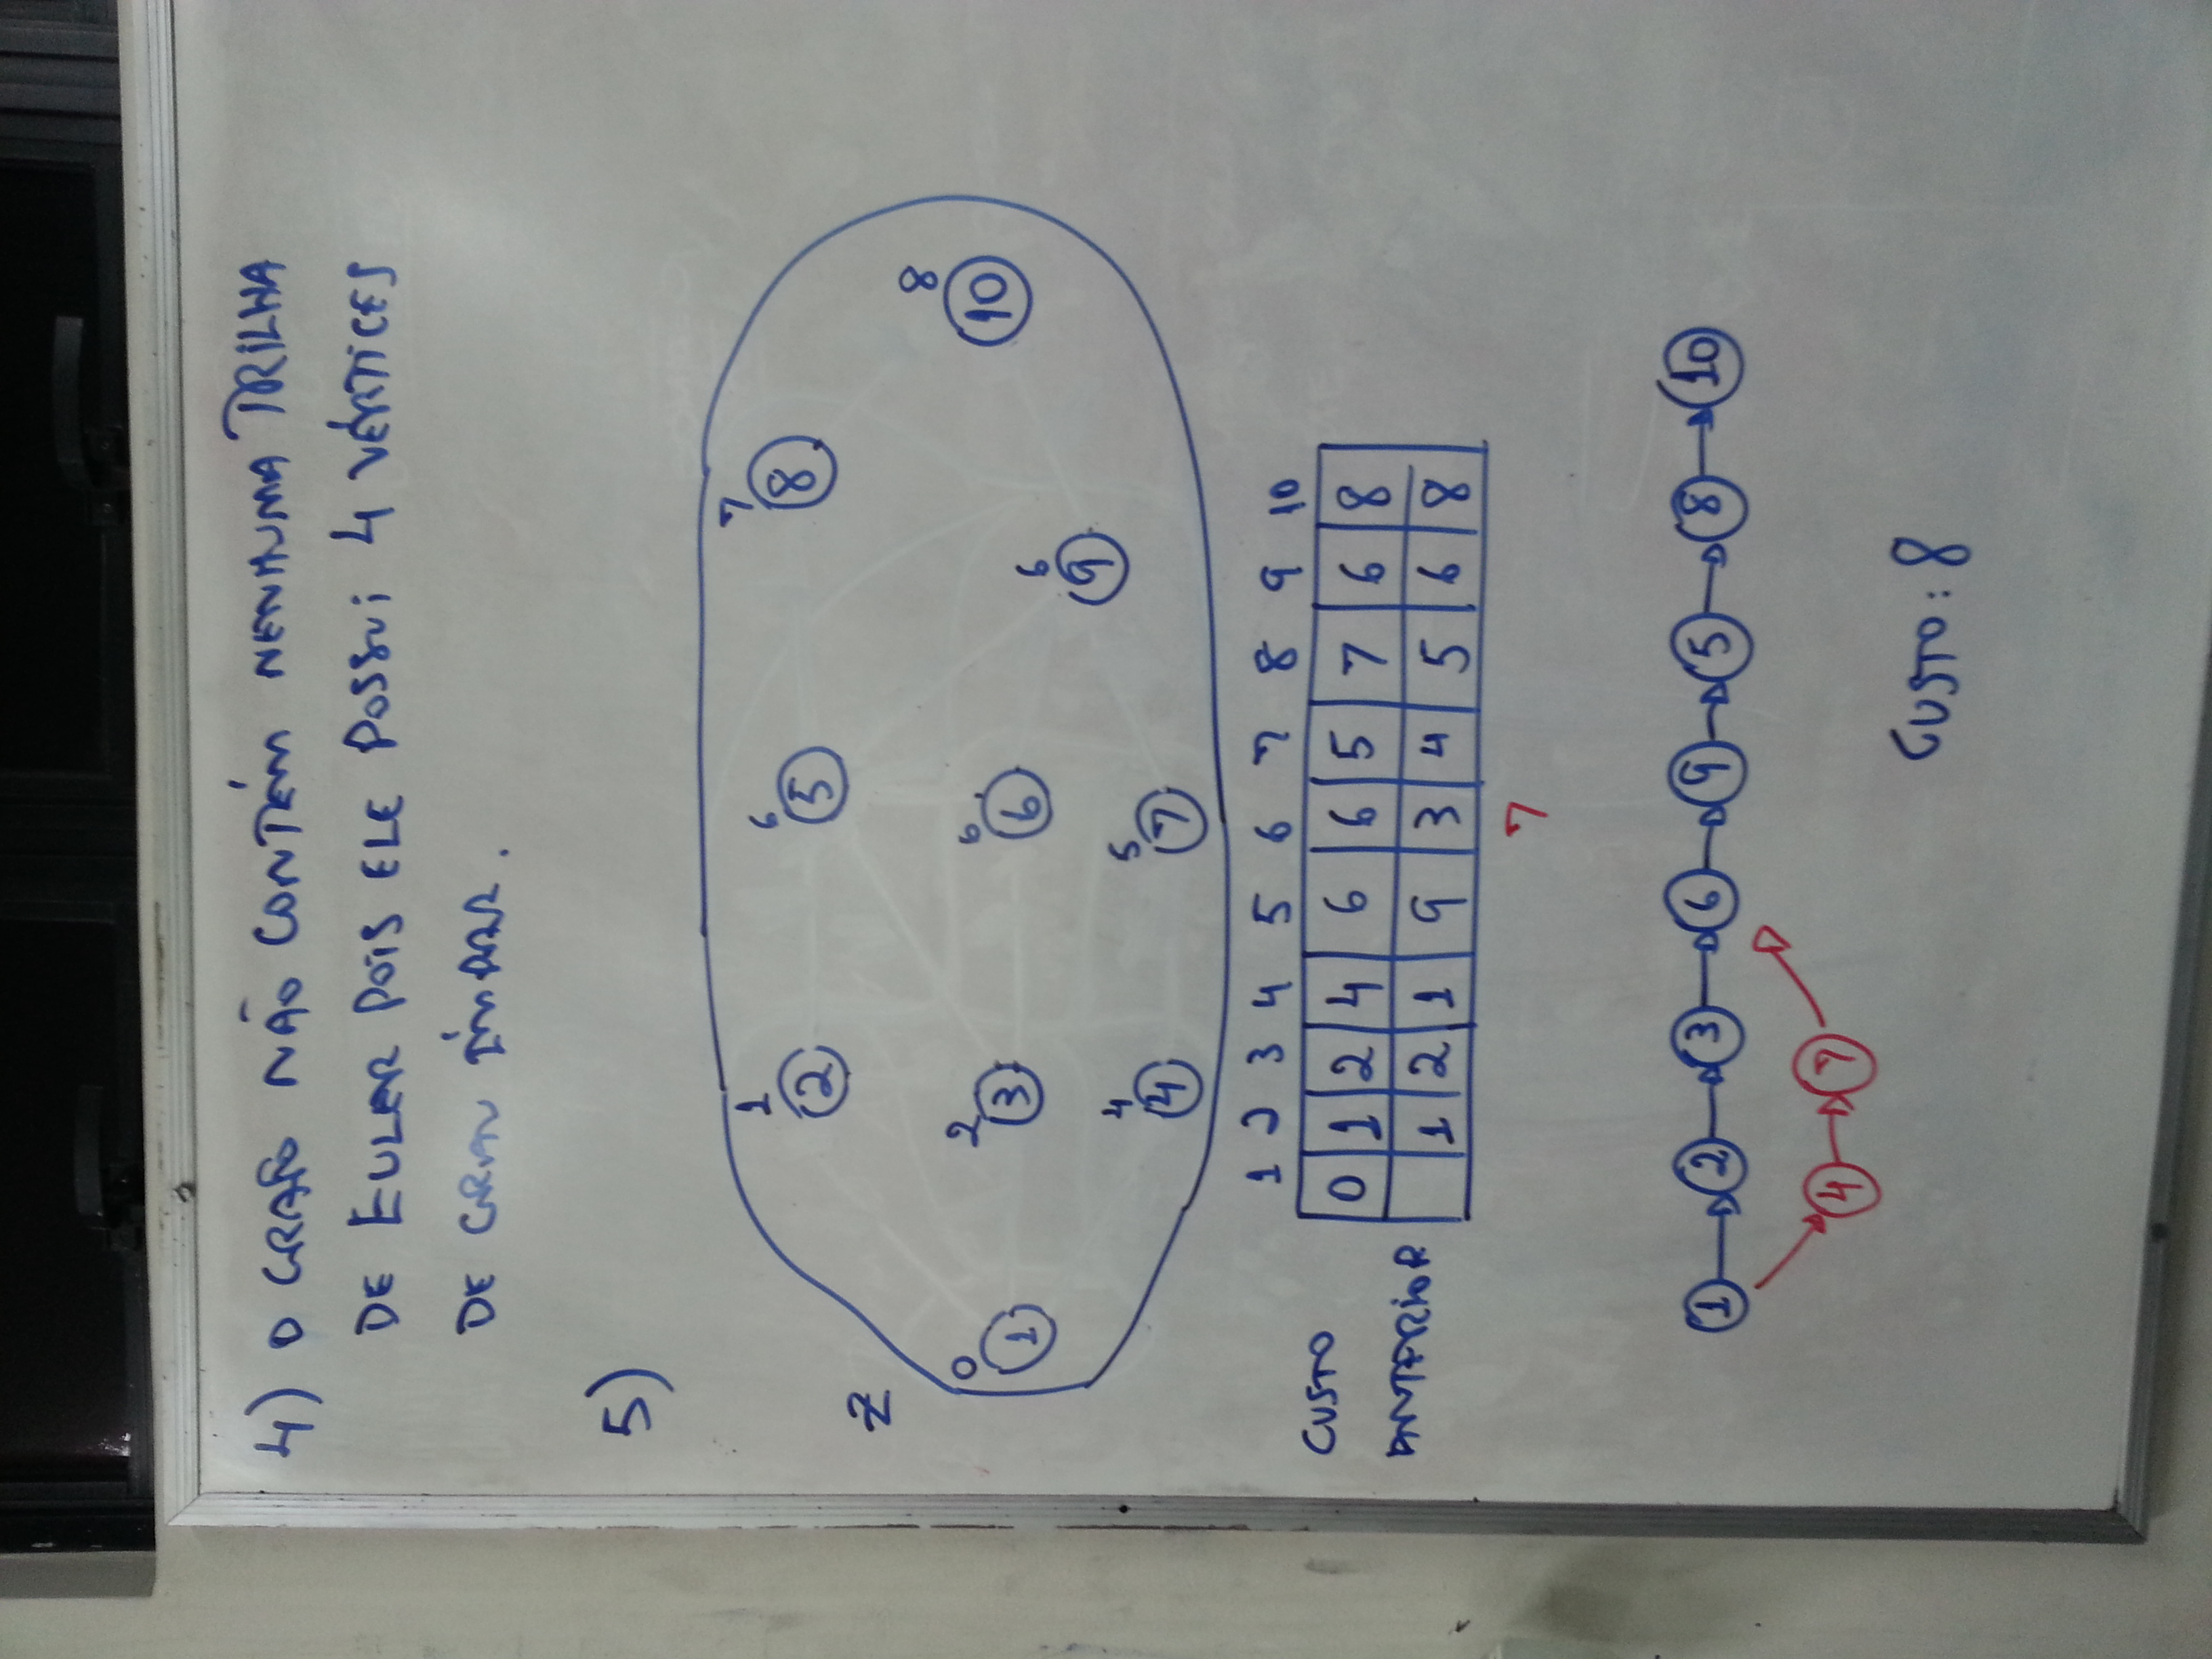 4) O GRAFO NÃO CONTÉM NENHUMA TRILHA
DE EULER POIS ELE POSSUI 4 VÉRTICES
DE GRAU ÍMPAR.
5)
Z
1 6 7
2 5 8
0 2 6 6 8
1 3 6 9 10
4 5
4 7
1 2 3 4 5 6 7 8 9 10
CUSTO 0 1 2 4 6 6 5 7 6 8
ANTERIOR 1 2 1 9 3 4 5 6 8
7
1 2 3 6 9 5 8 10
4 7
CUSTO: 8